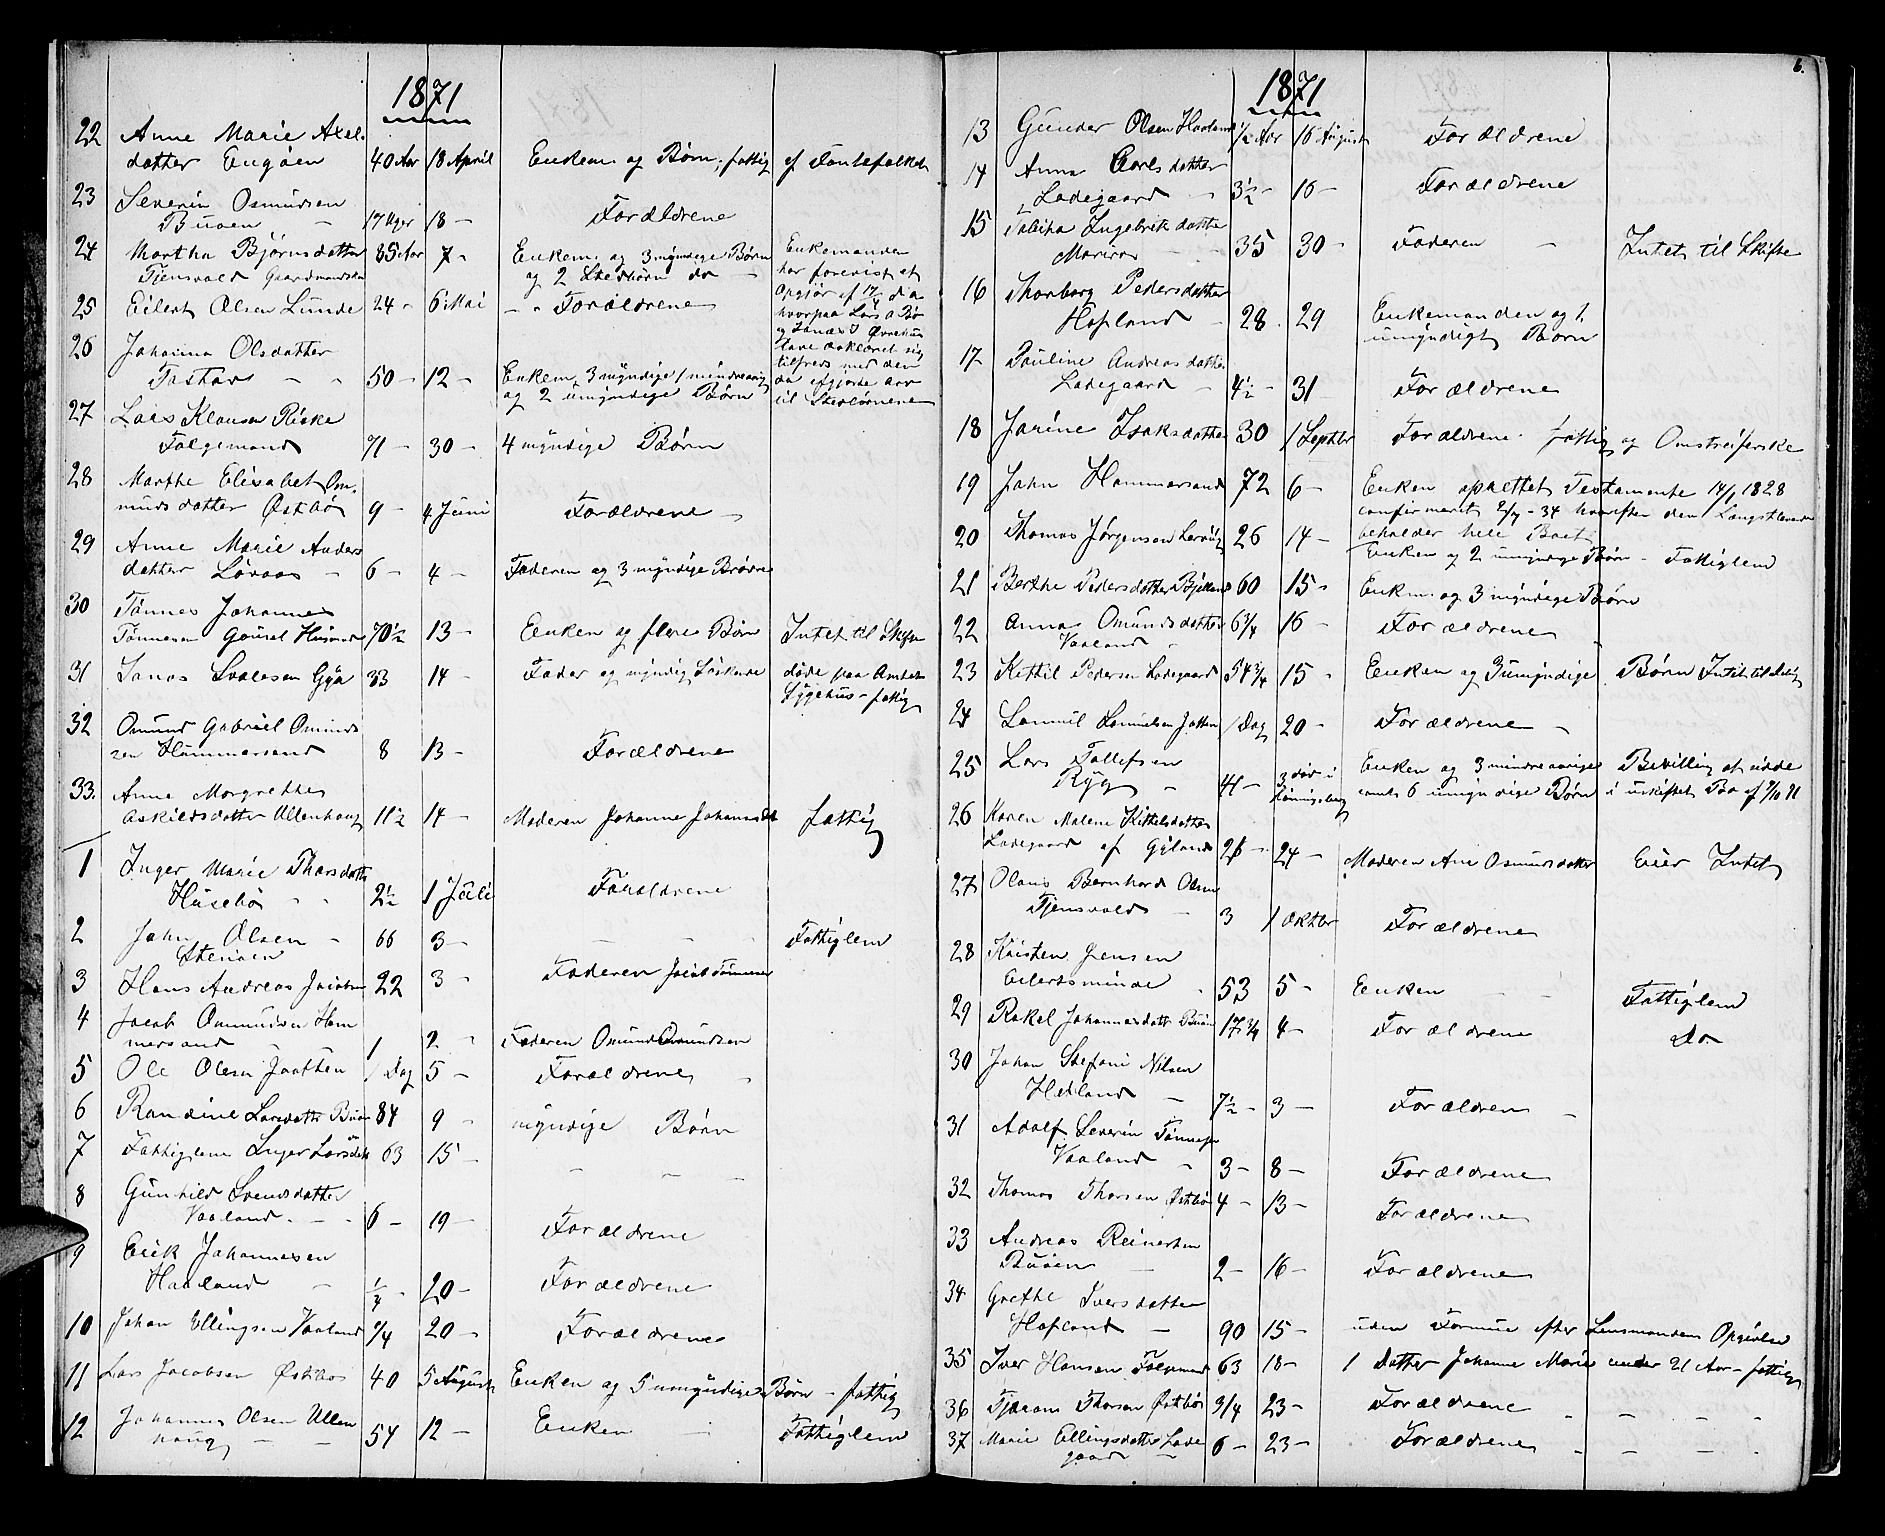 1871
22 Anne Marie Axel-
datter Engøen 40 Aar 18 April Enkem. og Børn, fattig af Fantefolket
23 Severin Osmundsen
Buøen - 17 Uger 18 - Forældrene
24 Martha Bjørnsdatter 85 Aar 7 - Enkem. og 3 myndige Børn Enkemanden
Tjensvold Gaardmandsk og 2 Stedbørn do - har forevist et
Opgjør af
25 Eilert Olsen Lunde 24 - 6 Mai - " Forældrene hvorpaa Lars
26 Johanna Olsdatter have erklæret sig
tilfreds med den
Tastad - - 50 - 12 - Enkem, 3 myndige 1 mindreaarig
og 2 umyndige Børn til Stedbørnene
27 Lars Klausen Riske
Følgemand 71 - 30 - 4 myndige Børn
28 Marthe Elisabet Om-
mundsdatter Østbø 9 - 4 Juni Forældrene -
29 Anne Marie Anders
datter - 6 - 4 - Faderen og 3 myndige Brødre
30 Tønnes Johannes
Tønnesen Gousel 70½ 13 - Enken og flere Børn Intet til Skifte
31 Jonas Svalesen Gya 33 14 - Fader og myndig Søskende døde paa Amtets
Sygehus - fattig
32 Omund Gabriel Omund
sen Hammersand 8 13 - Forældrene
33. Anne Margrethe
Askildsdatter Ullenhaug 11½ 14 - Moderen Johanne Johannesdt fattig
1 Inger Marie Thorsdatter
Husebø - - 2½ 1 Juli Forældrene
2 John Olsen - 66 3 - - - - Fattiglem
Stenøen
3 Hans Andreas Jacobsen 22 3 - Faderen Jacob Tønnesen
4 Jacob Ommundsen Ham
mersand - - 1 2 - Faderen Omund Omundsen
5 Ole Olsen Jaatten 1 Dag 5 - Forældrene -
6 Randine Larsdatter Buøen 84 9 - myndige Børn
7 Fattiglem Inger Larsdatt 63 15 - - - -
8 Gunhild Svendsdatter
Vaaland. - - 6 - 19 - Forældrene
9 Erik Johannesen
Haaland - ¼ - 20 - Forældrene
10 Johan Ellingsen Vaaland 20 - Forældrene
11 Lars Jacobsen Østbø 40 5 August Enken og 5 umyndige Børn - fattig
12 Johannes Olsen Ullen
haug - - 54 12 - Enken - Fattiglem
6.
1871
13 Gunder Olsen Haaland ½ Aar 16 August Forældrene
14 Anna Carlsdatter
Ladegaard - 3½ - 16 - Forældrene
15 Tabitha Ingebrikdatter
Mariero - - 35 30 - Faderen - Intet til Skifte
16 Thorborg Pedersdatter
Hofland - 28. 29 Enkemanden og 1
umyndigt Børn
17 Pauline Andreasdatter
Ladegaard - 4½ - 31 Forældrene
18 Jorine Isaksdatter 30 1 Septbr Forældrene. fattig og Omstreiferske
19 John Hammersand 72 6 - Enken oprettet Testamente 14/1 1828
confirmeret 2/7 - 34 hvorefter den Længstlevende
20 Thomas Jørgensen Lervig 26 14 - beholder hele Boet
Enken og 2 umyndige Børn - Fattiglem
21 Berthe Pedersdatter 60 15 - Enkem. og 3 myndige Børn
22 Annas Omundsdatter 6¾ 16 - Forældrene -
Vaaland -
23 Kittil Pedersen Ladegaard 54¾ 15 - Enken og 3 umyndige Børn Intet til Deling
24 Samuel Samuelsen Jatten 1 Dag 20 - Forældrene -
25 Lars Tollefsen
Ryg - 41 - 3 død i Enken og 3 mindreaarige Bevilling at sidde
samt 6 umyndige Børn i uskiftet Bo af
26 Karen Malene Kittelsdatter
Ladegaard af Gyland 26 - 24 - Moderen Ane Osmundsdatter Eier Intet
27 Olaus Bernhard Olsen
Tjensvold - 3 1 Oktbr Forældrene
28 Kristen Jensen
Eilertsminde - 53 5 - Enken - - Fattiglem
29 Rakel Johannesdatt Buøen 17¾ 4 - Forældrene do
30 Johan Stefani Nilsen
Hetland - 7½ - 3 - Forældrene -
31 Adolf Severin Tønnesen
Vaaland - 3 - 8 - Forældrene
32 Thomas Thorsen Østbø 4 - 13 - Forældrene
33 Andreas Reinertsen
Buøen - 2 - 16 - Forældrene
34 Grethe Iversdatter
Hofland - 90 15 - uden Formue efter Lensmandens Opgivelse
35 Iver Hansen 63 18 - 1 Datter Johanne Marie under 21 Aar - fattig
36 Tjøram Thorsen Østbø 3/4 23 - Forældrene " - - -
37 Marie Ellingsdatter Lade
gaard - 6 - 23 - Forældrene " - - -